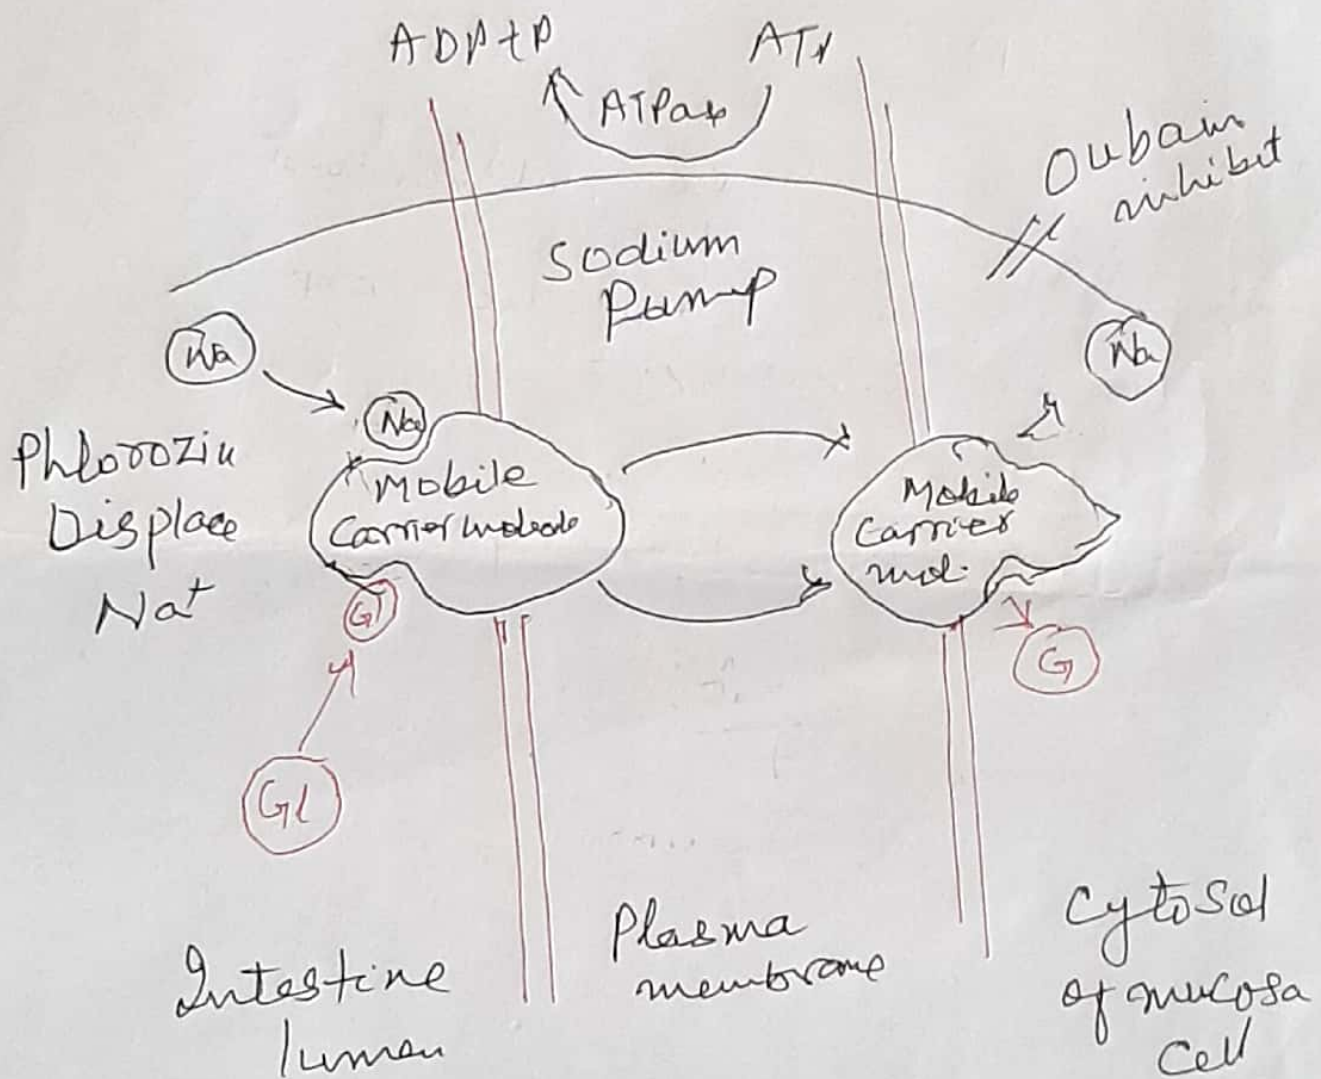 ADP+P
ATP
ATPase
Oubain
inhibit
Sodium
Pump
Na
Na
Na
Phlorozin
Displace
Na+
Mobile
Carrier molecule
Mobile
Carrier
mol.
Gl
G
Gl
Intestine
lumen
Plasma
membrane
Cytosol
of mucosa
Cell